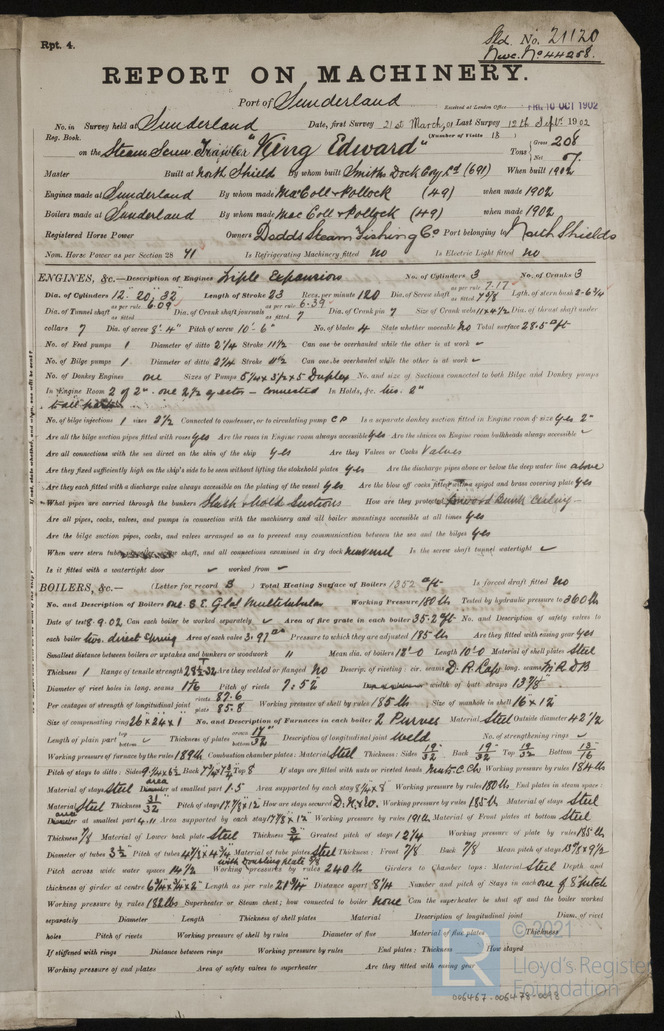 Rpt. 4.
Sld. No. 21120
Nwc. No 44258.
REPORT ON MACHINERY.
Port of Sunderland
Received at London Office FRI. 10 OCT 1902
No. in Survey held at Sunderland Date, first Survey 21st March, 01 Last Survey 12th Sept. 1902
Reg. Book. (Number of Visits 13)
on the Steam Screw Trawler "King Edward" Tons Gross 208 Net 7.
Master Built at North Shields By whom built Smiths Dock Coy Ld (691) When built 1902
Engines made at Sunderland By whom made MacColl & Pollock (49) when made 1902
Boilers made at Sunderland By whom made Mac Coll & Pollock (49) when made 1902
Registered Horse Power Owners Dodds Steam Fishing Co Port belonging to North Shields
Nom. Horse Power as per Section 28 41 Is Refrigerating Machinery fitted no Is Electric Light fitted no
ENGINES, &c.—Description of Engines Triple Expansion No. of Cylinders 3 No. of Cranks 3
Dia. of Cylinders 12" 20" 32" Length of Stroke 23 Revs. per minute 120 Dia. of Screw shaft as per rule 7.17 as fitted 7 5/8 Lgth. of stern bush 2-6 3/4
Dia. of Tunnel shaft as per rule 6.09 as fitted Dia. of Crank shaft journals as per rule 6.39 as fitted 7 Dia. of Crank pin 7 Size of Crank webs 11 x 4 1/2 Dia. of thrust shaft under
collars 7 Dia. of screw 8'. 4" Pitch of screw 10'. 6" No. of blades 4 State whether moveable no Total surface 28.5 sq ft
No. of Feed pumps 1 Diameter of ditto 2 1/4 Stroke 11 1/2 Can one be overhauled while the other is at work
No. of Bilge pumps 1 Diameter of ditto 2 1/4 Stroke 11 1/2 Can one be overhauled while the other is at work
No. of Donkey Engines one Sizes of Pumps 5 1/4 x 3 1/2 x 5 Duplex No. and size of Suctions connected to both Bilge and Donkey pumps
In Engine Room 2 of 2". one 2 1/2 ejector - connected In Holds, &c. 2"
to all parts
No. of bilge injections 1 sizes 3 1/2 Connected to condenser, or to circulating pump CP Is a separate donkey suction fitted in Engine room & size yes 2"
Are all the bilge suction pipes fitted with roses yes Are the roses in Engine room always accessible yes Are the sluices on Engine room bulkheads always accessible
Are all connections with the sea direct on the skin of the ship yes Are they Valves or Cocks Valves
Are they fixed sufficiently high on the ship's side to be seen without lifting the stokehold plates yes Are the discharge pipes above or below the deep water line above
Are they each fitted with a discharge valve always accessible on the plating of the vessel yes Are the blow off cocks fitted with a spigot and brass covering plate yes
What pipes are carried through the bunkers & hold Suctions How are they protected
Are all pipes, cocks, valves, and pumps in connection with the machinery and all boiler mountings accessible at all times yes
Are the bilge suction pipes, cocks, and valves arranged so as to prevent any communication between the sea and the bilges yes
When were stern tube, propeller, screw shaft, and all connections examined in dry dock new vessel Is the screw shaft tunnel watertight
Is it fitted with a watertight door worked from
BOILERS, &c.— (Letter for record S) Total Heating Surface of Boilers 1352 sq ft Is forced draft fitted no
No. and Description of Boilers one S.E. Cyl Multitubular Working Pressure 180 lb Tested by hydraulic pressure to 360 lb
Date of test 8.9.02 Can each boiler be worked separately Area of fire grate in each boiler 35.2 sq ft No. and Description of safety valves to
each boiler two direct spring Area of each valve 3.97 Pressure to which they are adjusted 185 lb Are they fitted with easing gear yes
Smallest distance between boilers or uptakes and bunkers or woodwork Mean dia. of boilers 12'.0 Length 10.0 Material of shell plates Steel
Thickness 1 Range of tensile strength 28 1/2-32 Are they welded or flanged no Descrip. of riveting: cir. seams D. R. Lap long. seams
Diameter of rivet holes in long. seams 1 1/16 Pitch of rivets 7.52 width of butt straps 13 7/8"
Per centages of strength of longitudinal joint rivets 87.6 plate 85.8 Working pressure of shell by rules 185 lb Size of manhole in shell 16 x 12
Size of compensating ring 26 x 24 x 1 No. and Description of Furnaces in each boiler 2 Purves Material Steel Outside diameter 42 1/2
Length of plain part top bottom Thickness of plates crown bottom 17/32 Description of longitudinal joint weld No. of strengthening rings
Working pressure of furnace by the rules 189 lb Combustion chamber plates: Material Steel Thickness: Sides 19/32 Back 19/32 Top 19/32 Bottom 13/16
Pitch of stays to ditto: Sides 9 1/4 x 6 1/2 Back 7 1/4 x 7 3/4 Top 8 If stays are fitted with nuts or riveted heads nuts C.Ch Working pressure by rules 184 lb
Material of stays Steel area at smallest part 1.5 Area supported by each stay 8 1/4 x 8" Working pressure by rules 180 lb End plates in steam space:
Material Steel Thickness 31/32 Pitch of stays 17 7/8 x 12 How are stays secured D.N & W. Working pressure by rules 185 lb Material of stays Steel
area at smallest part 4.11 Area supported by each stay 17 7/8 x 12 Working pressure by rules 191 lb Material of Front plates at bottom Steel
Thickness 7/8 Material of Lower back plate Steel Thickness 3/4 Greatest pitch of stays 12 1/4 Working pressure of plate by rules 185 lb
Diameter of tubes 3 1/2 Pitch of tubes 4 7/8 x 4 3/4 Material of tube plates Steel Thickness: Front 7/8 Back 7/8 Mean pitch of stays 13 7/8 x 9 1/2
with Doubling plate 3/8
Pitch across wide water spaces 14 1/2 Working pressures by rules 240 lb Girders to Chamber tops: Material Steel Depth and
thickness of girder at centre 6 3/4 x 3/4 x 2 Length as per rule 21 3/4 Distance apart 8 1/4 Number and pitch of Stays in each one of 8" pitch
Working pressure by rules 182 lbs Superheater or Steam chest; how connected to boiler none Can the superheater be shut off and the boiler worked
separately Diameter Length Thickness of shell plates Material Description of longitudinal joint Diam. of rivet
holes Pitch of rivets Working pressure of shell by rules Diameter of flue Material of flue plates Thickness
If stiffened with rings Distance between rings Working pressure by rules End plates: Thickness How stayed
Working pressure of end plates Area of safety valves to superheater Are they fitted with easing gear
© 2021
Lloyd's Register
Foundation
006467-006478-0098